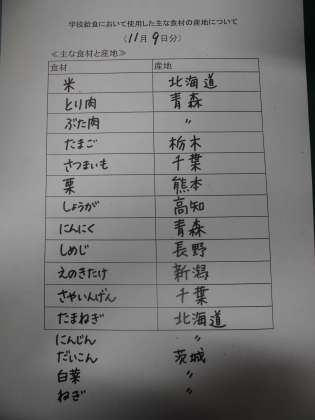 学校給食において使用した主な食材の産地について
(11月9日分)
≪主な食材と産地≫
食材 産地
米 北海道
とり肉 青森
ぶた肉 〃
たまご 栃木
さつまいも 千葉
栗 熊本
しょうが 高知
にんにく 青森
しめじ 長野
えのきたけ 新潟
さやいんげん 千葉
たまねぎ 北海道
にんじん 〃
だいこん 茨城
白菜 〃
ねぎ 〃